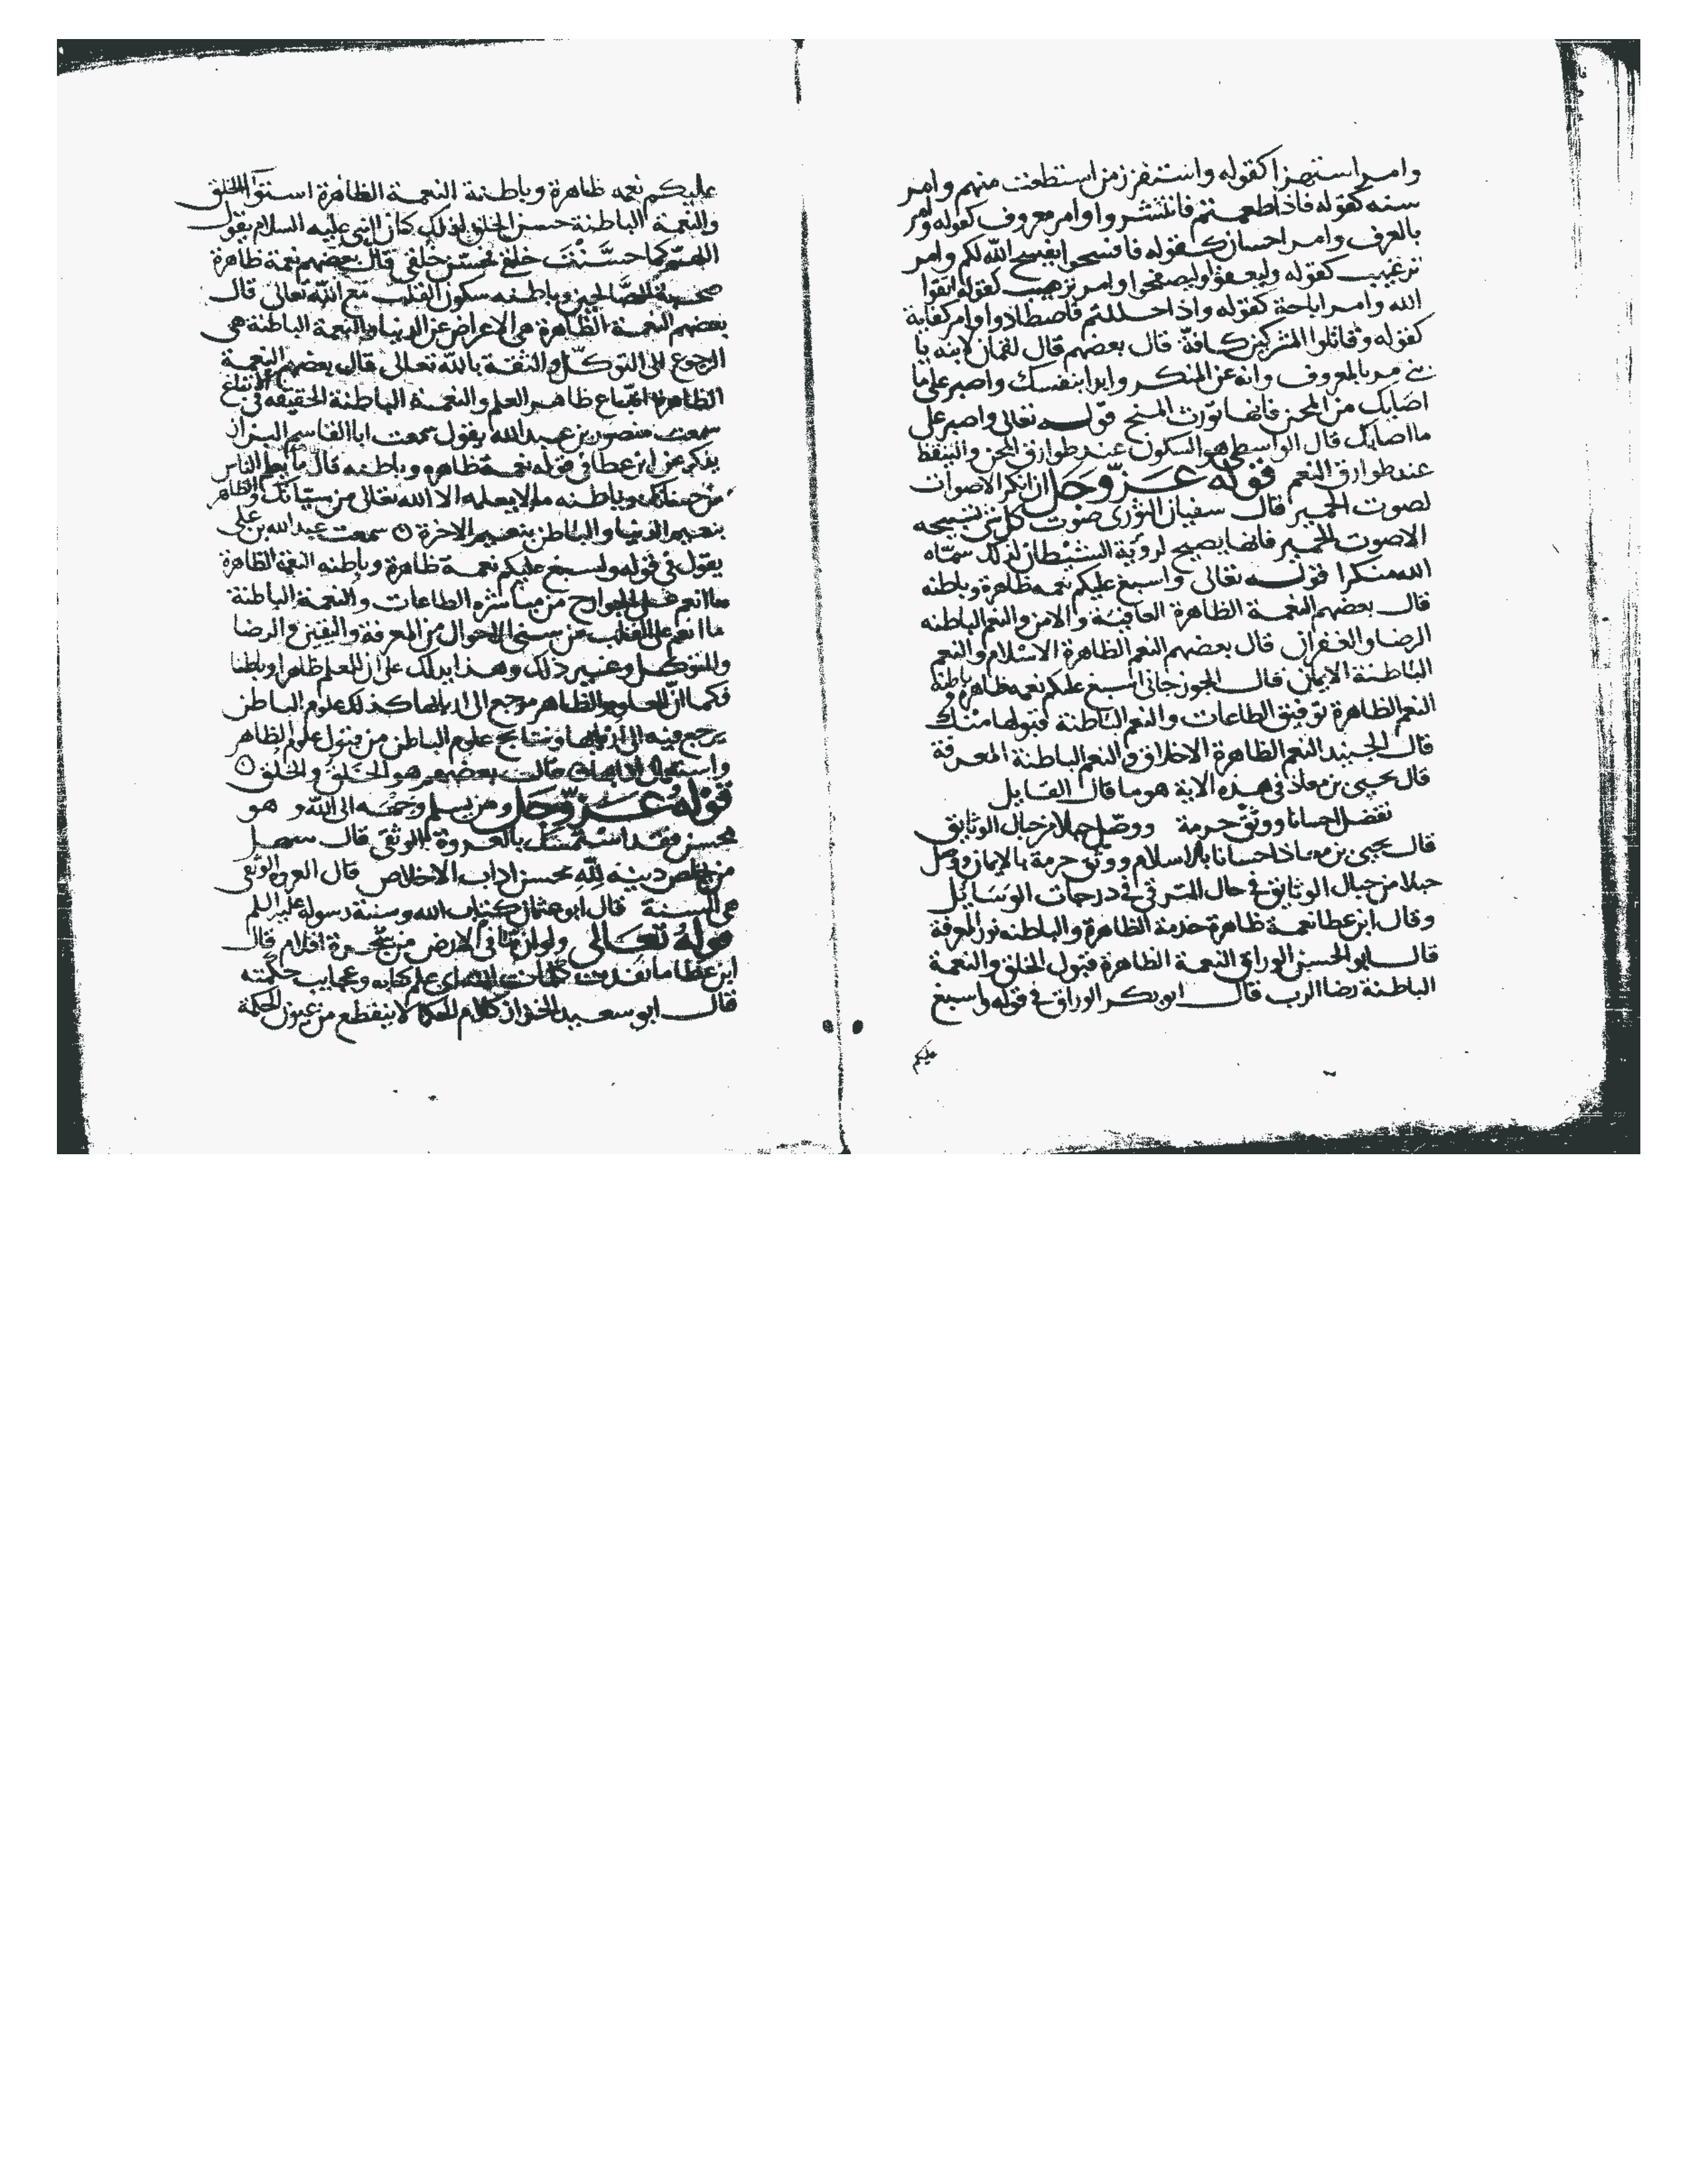 وامر استهزا كقوله واستفزز من استطعت منهم وامر
سنه كقوله فاذا طعمتم فانتشروا وامر معروف كقوله وامر
بالعرف وامر احسان كقوله فافسحوا يفسح الله لكم وامر
ترغيب كقوله وليعفوا وليصفحوا وامر ترهيب كقوله اتقوا
الله وامر اباحة كقوله واذا حللتم فاصطادوا وامر كفاية
كقوله وقاتلوا المشركين كافة قال بعضهم قال لقمان لابنه يا
بني مر بالمعروف وانه عن المنكر وابدا بنفسك واصبر على ما
اصابك من المحن فانها تورث المنح قوله تعالى واصبر على
ما اصابك قال الواسطي هو السكون عند طوارق المحن والتيقظ
عند طوارق النعم قوله عز وجل ان انكر الاصوات
لصوت الحمير قال سفيان الثوري صوت كل شي تسبيحه
الا صوت الحمير فانها يصيح لروية الشيطان لذلك سماه
الله منكرا قوله تعالى واسبغ عليكم نعمه ظاهرة وباطنه
قال بعضهم النعمة الظاهرة العافية والامن والنعم الباطنه
الرضا والغفران قال بعضهم النعم الظاهرة الاسلام والنعم
الباطنة الايمان قال الجوزجاني اسبغ عليكم نعمه ظاهرة وباطنه
النعم الظاهرة توفيق الطاعات والنعم الباطنة قبولها منك
قال الجنيد النعم الظاهرة الاخلاق والنعم الباطنة المعرفة
قال يحيى بن معاذ في هذه الاية هو ما قال القايل
تفضل احسانا ووثق حرمة ووصل حبلا من حبال الوثايق
قال يحيى بن معاذ احسانا بالاسلام ووثق حرمة بالايمان ووصل
حبلا من حبال الوثايق في حال المترقي في درجات الوسايل
وقال ابن عطا نعمة ظاهرة خدمة الظاهرة والباطنه نور المعرفة
قال ابو الحسين الوراق النعمة الظاهرة قبول الخلق والنعمة
الباطنة رضا الرب قال ابو بكر الوراق في قوله واسبغ
عليكم
عليكم نعمه ظاهرة وباطنة النعمة الظاهرة استوآ الخلق
والنعمة الباطنة حسن الخلق لذلك كان النبي عليه السلام يقول
اللهم كما حسنت خلقي فحسن خلقي قال بعضهم نعمة ظاهرة
صحبة الصالحين وباطنه سكون القلب مع الله تعالى قال
بعضهم النعمة الظاهرة هي الاعراض عن الدنيا والنعمة الباطنة هي
الرجوع الى التوكل والثقة بالله تعالى قال بعضهم النعمة
الظاهرة اتباع ظاهر العلم والنعمة الباطنة الحقيقه في الاتباع
سمعت منصور بن عبد الله يقول سمعت ابا القاسم البزاز
يذكر عن ابن عطا في قوله نعمة ظاهره وباطنه قال ما يعلم الناس
من حسناتك وباطنه ما لا يعلمه الا الله تعالى من سياتك والظاهر
بنعيم الدنيا والباطن بنعيم الاخرة ○ سمعت عبد الله بن علي
يقول في قوله واسبغ عليكم نعمة ظاهرة وباطنه النعمة الظاهرة
ما انعم على الجوارح من مباشره الطاعات والنعمة الباطنة
ما انعم على القلب من سني الاحوال من المعرفة واليقين والرضا
والتوكل وغير ذلك وهذا يدلك على ان للعلم ظاهرا وباطنا
فكما ان العلوم الظاهر مرجع الى اربابها كذلك علوم الباطن
يرجع فيه الى اربابها ونتايج علوم الباطن من قبول علوم الظاهر
واستعمال ادابها قال بعضهم هو الخلق والخلق ○
قوله عز وجل ومن يسلم وجهه الى الله وهو
محسن فقد استمسك بالعروة الوثقى قال سهل
من يخلص دينه لله محسن اداب الاخلاص قال العروة الوثقى
هي السنة قال ابو عثمان كتاب الله وسنة رسوله عليه السلم
قوله تعالى ولو ان ما في الارض من شجرة اقلام قال
ابن عطا ما نفدت كلمات الله اي علم كتابه وعجايب حكمته
قال ابو سعيد الخراز كلام الحكما لا ينقطع من عيون الحكمة